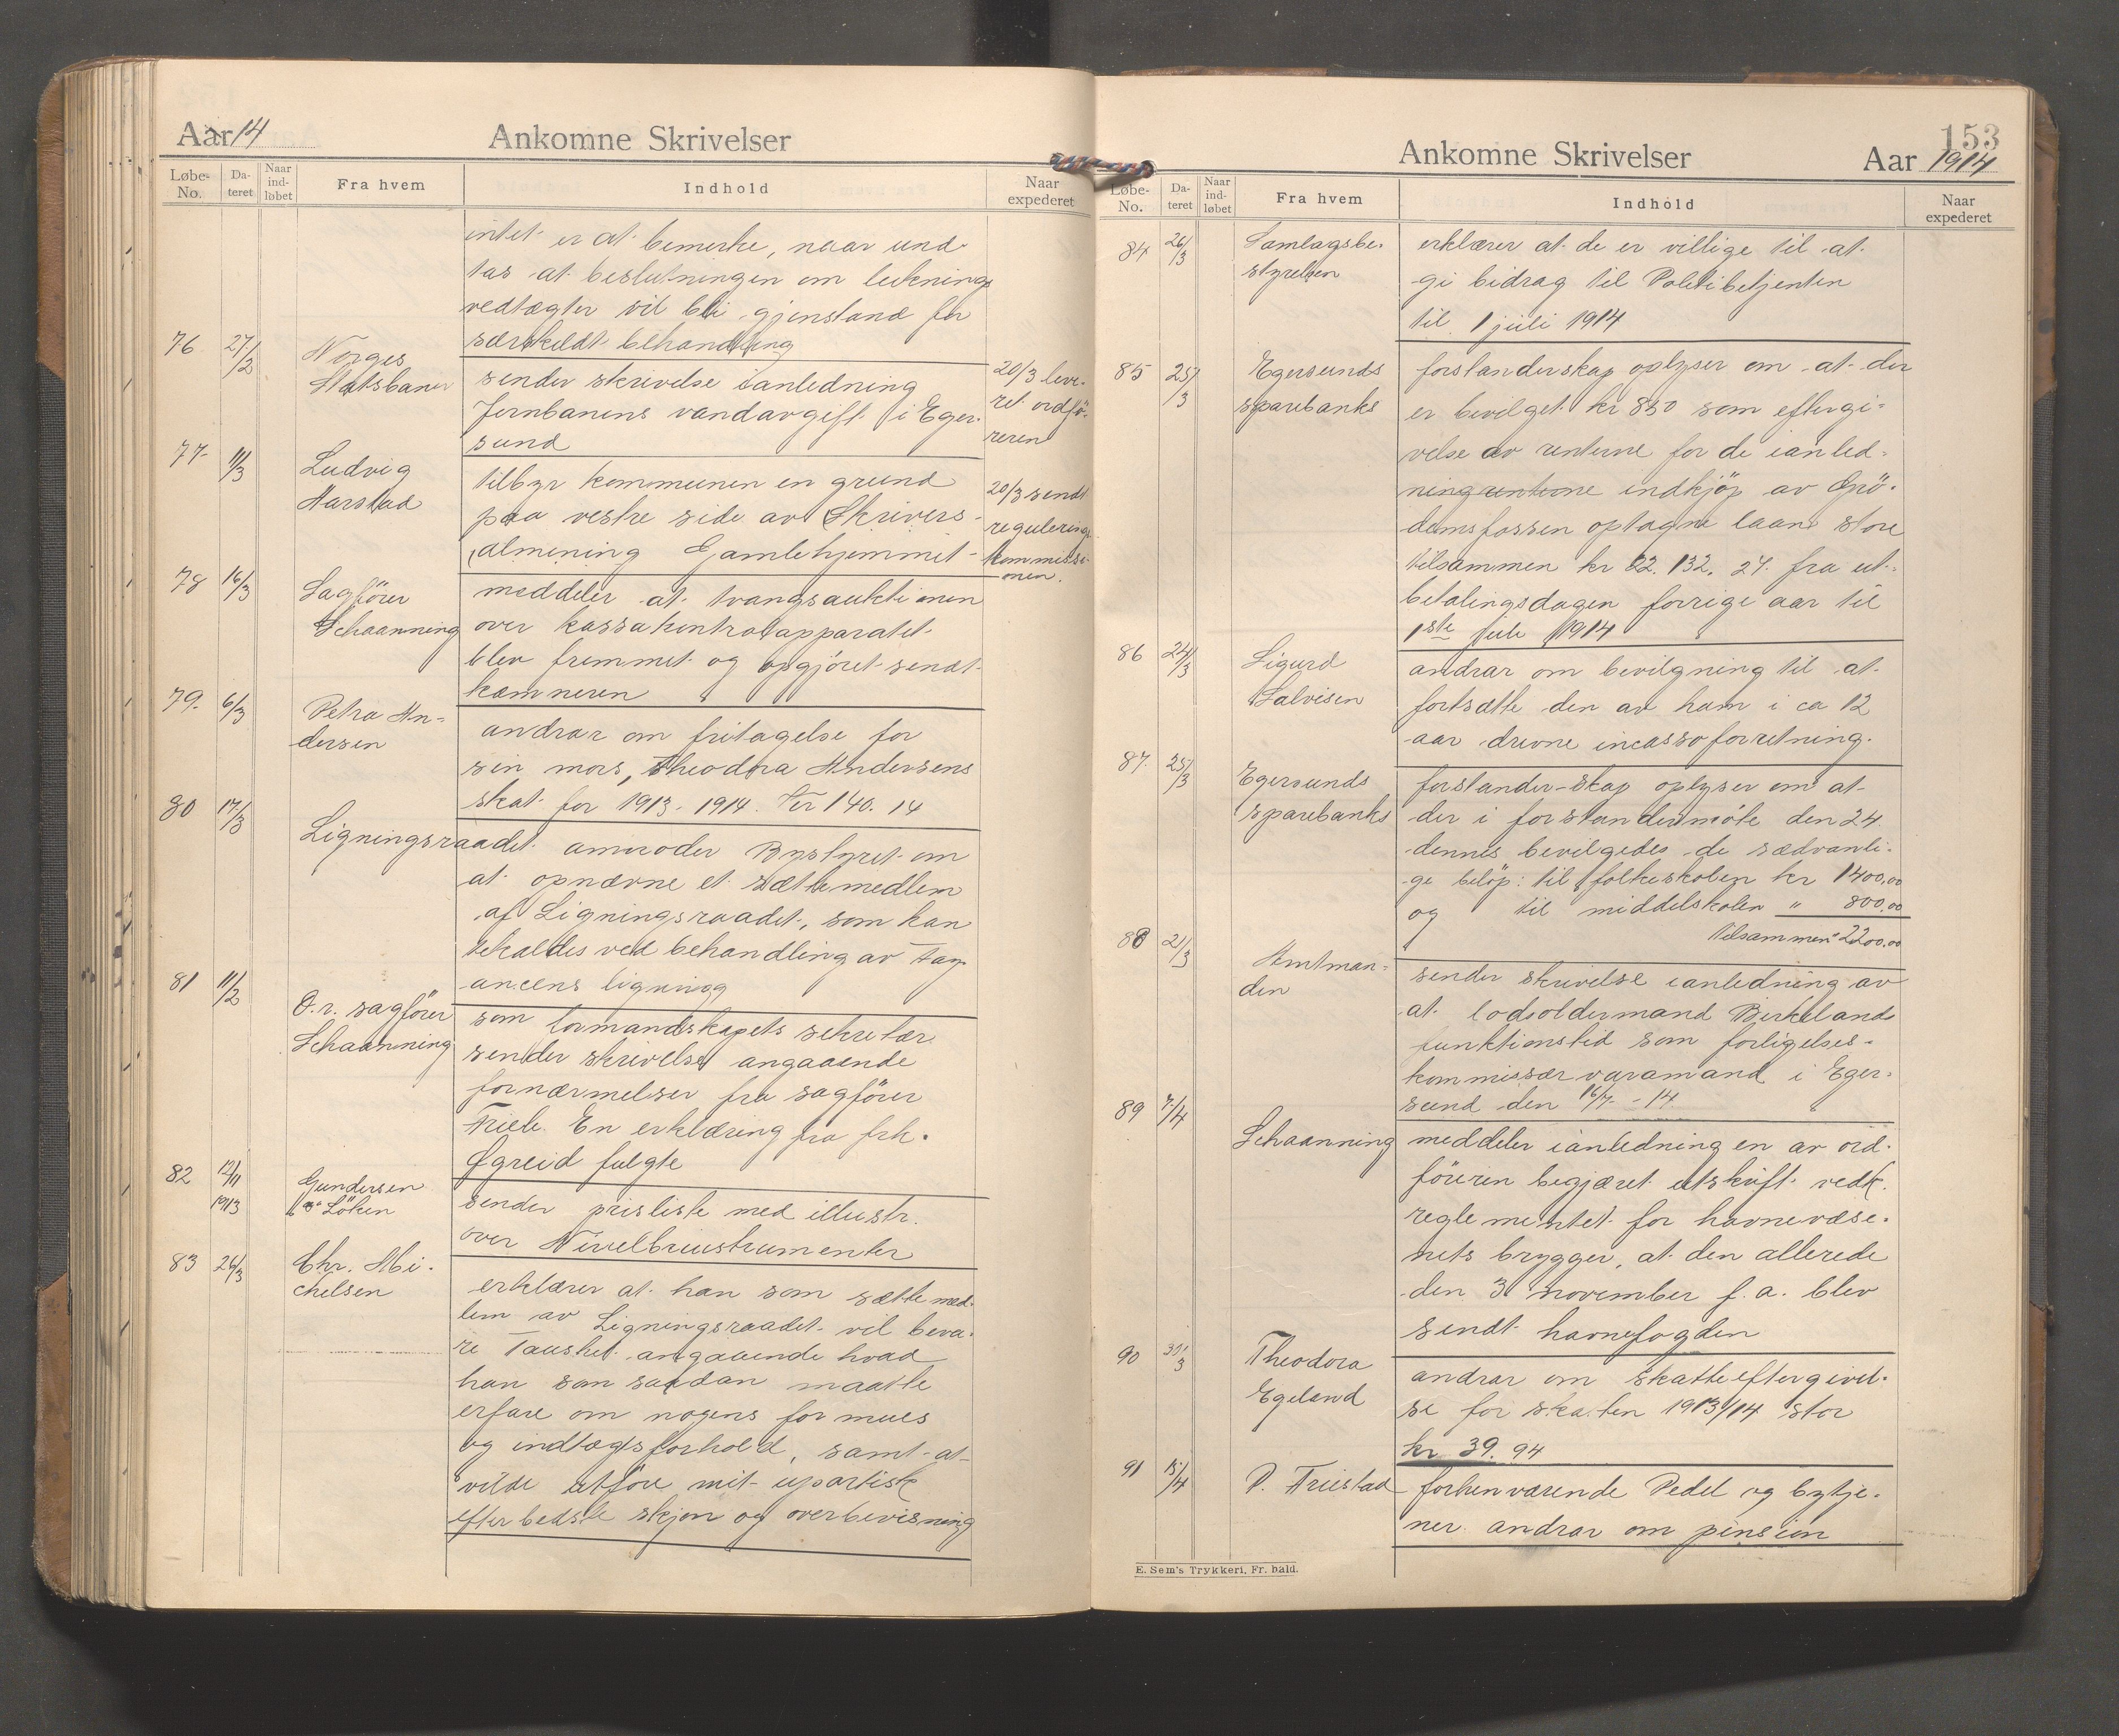 Aar 14
Ankomne Skrivelser
Løbe-No. Da-teret Naar ind-løbet Fra hvem Indhold Naar expederet
intet er at bemerke, naar und-
tas at beslutningen om
vedtægter vil bli gjenstand for
særskildt behandling
76 27/2 Norges Statsbaner
sender skrivelse i anledning
Jernbanens vandavgift i Eger-
sund
20/3 leve-
ret ordfö-
reren
77 11/3 Ludvig Harstad
tilbyr kommunen en grund
paa vestre side av Skrivers-
almening Gamlehjemmet
20/3 sendt
regulerings-
kommissi-
onen.
78 16/3 Sagförer Schaanning
meddeler at tvangsauktionen
over kassakontrolapparatet
blev fremmet og opgjöret sendt
kæmneren
79. 6/3 Petra An-
dersen
andrar om fritagelse for
sin mors, Theodora Andersens
skat for 1913-1914 kr 140.14
80 17/3 Ligningsraadet anmoder Bystyret om
at opnævne et sættemedlem
af Ligningsraadet, som kan
tilkaldes ved behandling av
ligningg
81 11/2 O.r. sagförer
Schaanning
som formandskapets sekretær
sender skrivelse angaaende
fornærmelser fra sagförer
Friele. En erklæring fra frk.
Øgreid fulgte
82 12/11 1913 Gundersen
& Löken
sender prisliste med illustr.
over Nivelbruistrumenter
83 26/3 Chr. Mi-
chelsen
erklærer at han som sættemed-
lem av Ligningsraadet vil beva-
re Taushet angaaende hvad
han som saadan maatte
erfare om nogens formues
og indtægtsforhold, samt at
vilde utföre mit upartisk
efter bedste skjøn og overbevisning
153
Ankomne Skrivelser
Aar 1914
Løbe-No. Da-teret Naar ind-løbet Fra hvem Indhold Naar expederet
84 26/3 Samlagsbe-
styrelsen
erklærer at de er villige til at
gi bidrag til Politibetjenten
til 1 juli 1914
85 25/3 Egersunds
sparebanks
forstanderskap oplyser om at der
er bevilget kr 850 som eftergi-
velse av renterne for de i anled-
ning renterne indkjöp av Grö-
demsfossen optagne laan store
tilsammen kr 22.132.27 fra ut-
betalingsdagen forrige aar til
1ste juli 1914
86 24/3 Sigurd
Salvisen
andrar om bevilgning til at
fortsætte den av ham i ca 12
aar drevne incassoforretning.
87. 25/3 Egersunds
sparebanks
forstander-skap oplyser om at
der i forstandermöte den 24
dennes bevilgedes de sædvanli-
ge belöp: til folkeskolen kr 1400,00
og til middelskolen " 800,00
tilsammen 2200,00
88 21/3 Amtman-
den
sender skrivelse i anledning av
at lodsoldermand Birkelands
funktionstid som forligelses-
kommissær varamand i Eger-
sund den 16/7 - 14
89 7/4 Schaanning
meddeler i anledning en av ord-
föreren begjæret utskrift vedk.
reglementet for havnevæse-
nets brygger, at den allerede
den 3 november f.a. blev
sendt havnefogden
90 30/3 Theodora
Egeland
andrar om skatteeftergivel-
se for skatten 1913/14 stor
kr 39.94
91 15/4 P. Friestad
forhenværende Pedel og bytje-
ner andrar om pension
E. Sem's Trykkeri, Fr. hald.